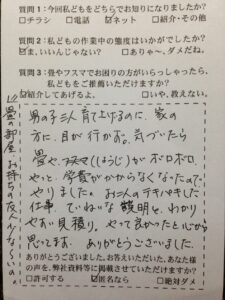 質問1：今回私どもをどちらでお知りになりましたか？
□チラシ　□電話　☑ネット　□紹介・その他
質問2：私どもの作業中の態度はいかがでしたか？
☑ま、いいんじゃない？　□ありゃ～、ダメだね。
質問3：畳やフスマでお困りの方がいらっしゃったら、
私どもをご推薦いただけますか？
☑紹介してあげるよ。　□いや、教えない。
男の子三人育て上げるのに、家の
方に、目が行かず。気づいたら
畳や、フスマ、（はしら）がボロボロ
やっと、学費がかからなくなったので
やりました。お二人のテキパキした
仕事、ていねいな説明と、わかり
やすい見積り、やって良かったと心から
思ってます。ありがとうございました。
の部屋お持ちの友人少ない
ありがとうございました。お答えいただいた、あなた様
の声を、弊社資料等に掲載させていただけますか？
□許可する　☑匿名なら　□絶対ダメ